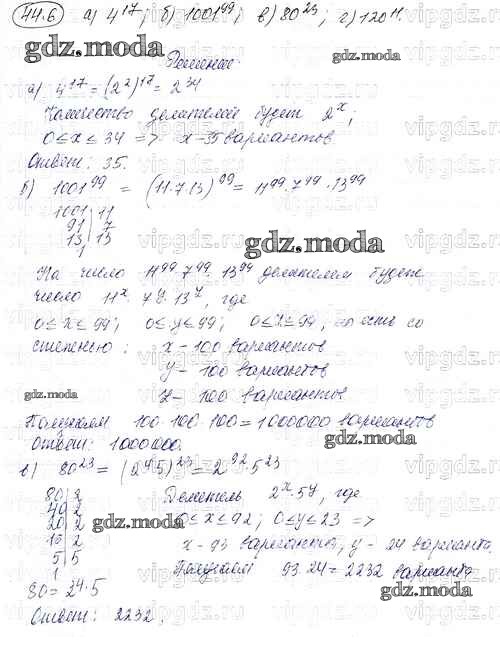 44.6 а) 4¹⁷; б) 1001⁹⁹; в) 80²³; г) 120¹¹.
gdz.moda
Решение.
а) 4¹⁷ = (2²)¹⁷ = 2³⁴
Количество делителей будет 2ˣ;
0 ≤ x ≤ 34 => x - 35 вариантов
Ответ: 35.
б) 1001⁹⁹ = (11·7·13)⁹⁹ = 11⁹⁹·7⁹⁹·13⁹⁹
1001 | 11
91 | 7
13 | 13
1
gdz.moda
На число 11⁹⁹·7⁹⁹·13⁹⁹ делителем будет
число 11ˣ·7ʸ·13ᶻ, где
0 ≤ x ≤ 99; 0 ≤ y ≤ 99; 0 ≤ z ≤ 99, то есть со
степенью: x - 100 вариантов
y - 100 вариантов
gdz.moda z - 100 вариантов
Получаем 100·100·100 = 1000000 вариантов
Ответ: 1000000.
gdz.moda
в) 80²³ = (2⁴·5)²³ = 2⁹²·5²³
80 | 2 Делитель 2ˣ·5ʸ, где
40 | 2
20 | 2 0 ≤ x ≤ 92; 0 ≤ y ≤ 23 =>
gdz.moda
10 | 2 x - 93 варианта, y - 24 варианта
5 | 5 Получаем 93·24 = 2232 варианта
1
80 = 2⁴·5
gdz.moda
Ответ: 2232.
vipgdz.ru